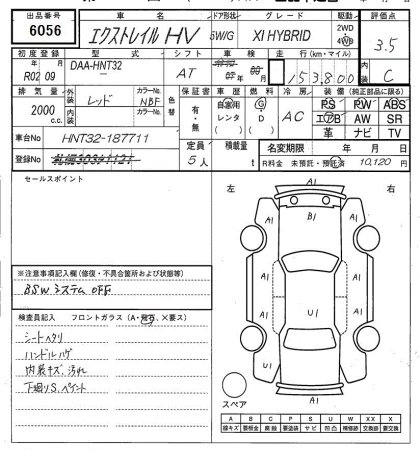 出品番号 車名 ドア形状 グレード 駆動 評価点
6056 エクストレイル HV 5W/G XI HYBRID 2WD 4WD 3.5
初度登録 型式 シフト 車検 走行(km・マイル) 内装
R02 年 09 月 DAA-HNT32 AT 153,800 C
排気量 外装 カラーNo. 色替 保証書 車歴 燃料 冷房 装備(純正部品に限る)
2000 c.c. レッド NBF 有・無 自家用 レンタ ( ) G D ( ) AC PS PW ABS
内装 カラーNo. エアB AW SR
革 ナビ TV
車台No HNT32-187711 定員 積載量 名変期限 年 月 日
登録No 5人 t R料金 未預託・預託済 10,120円
セールスポイント
左 右
A1
B1
A1 A1
A1 A1
A1 U1
U1 A1
A1
スペア
※注意事項記入欄(修復・不具合箇所および状態等)
BSWシステム OFF
検査員記入 フロントガラス(A・飛石、×要ス)
シートヘタリ
ハンドルハゲ
内装キズ、汚れ
下廻りS、ペイント
A B C P S U W X XX
線キズ 要板金 腐蝕 要塗装 サビ 凹凸 補修跡 要交換 交換跡